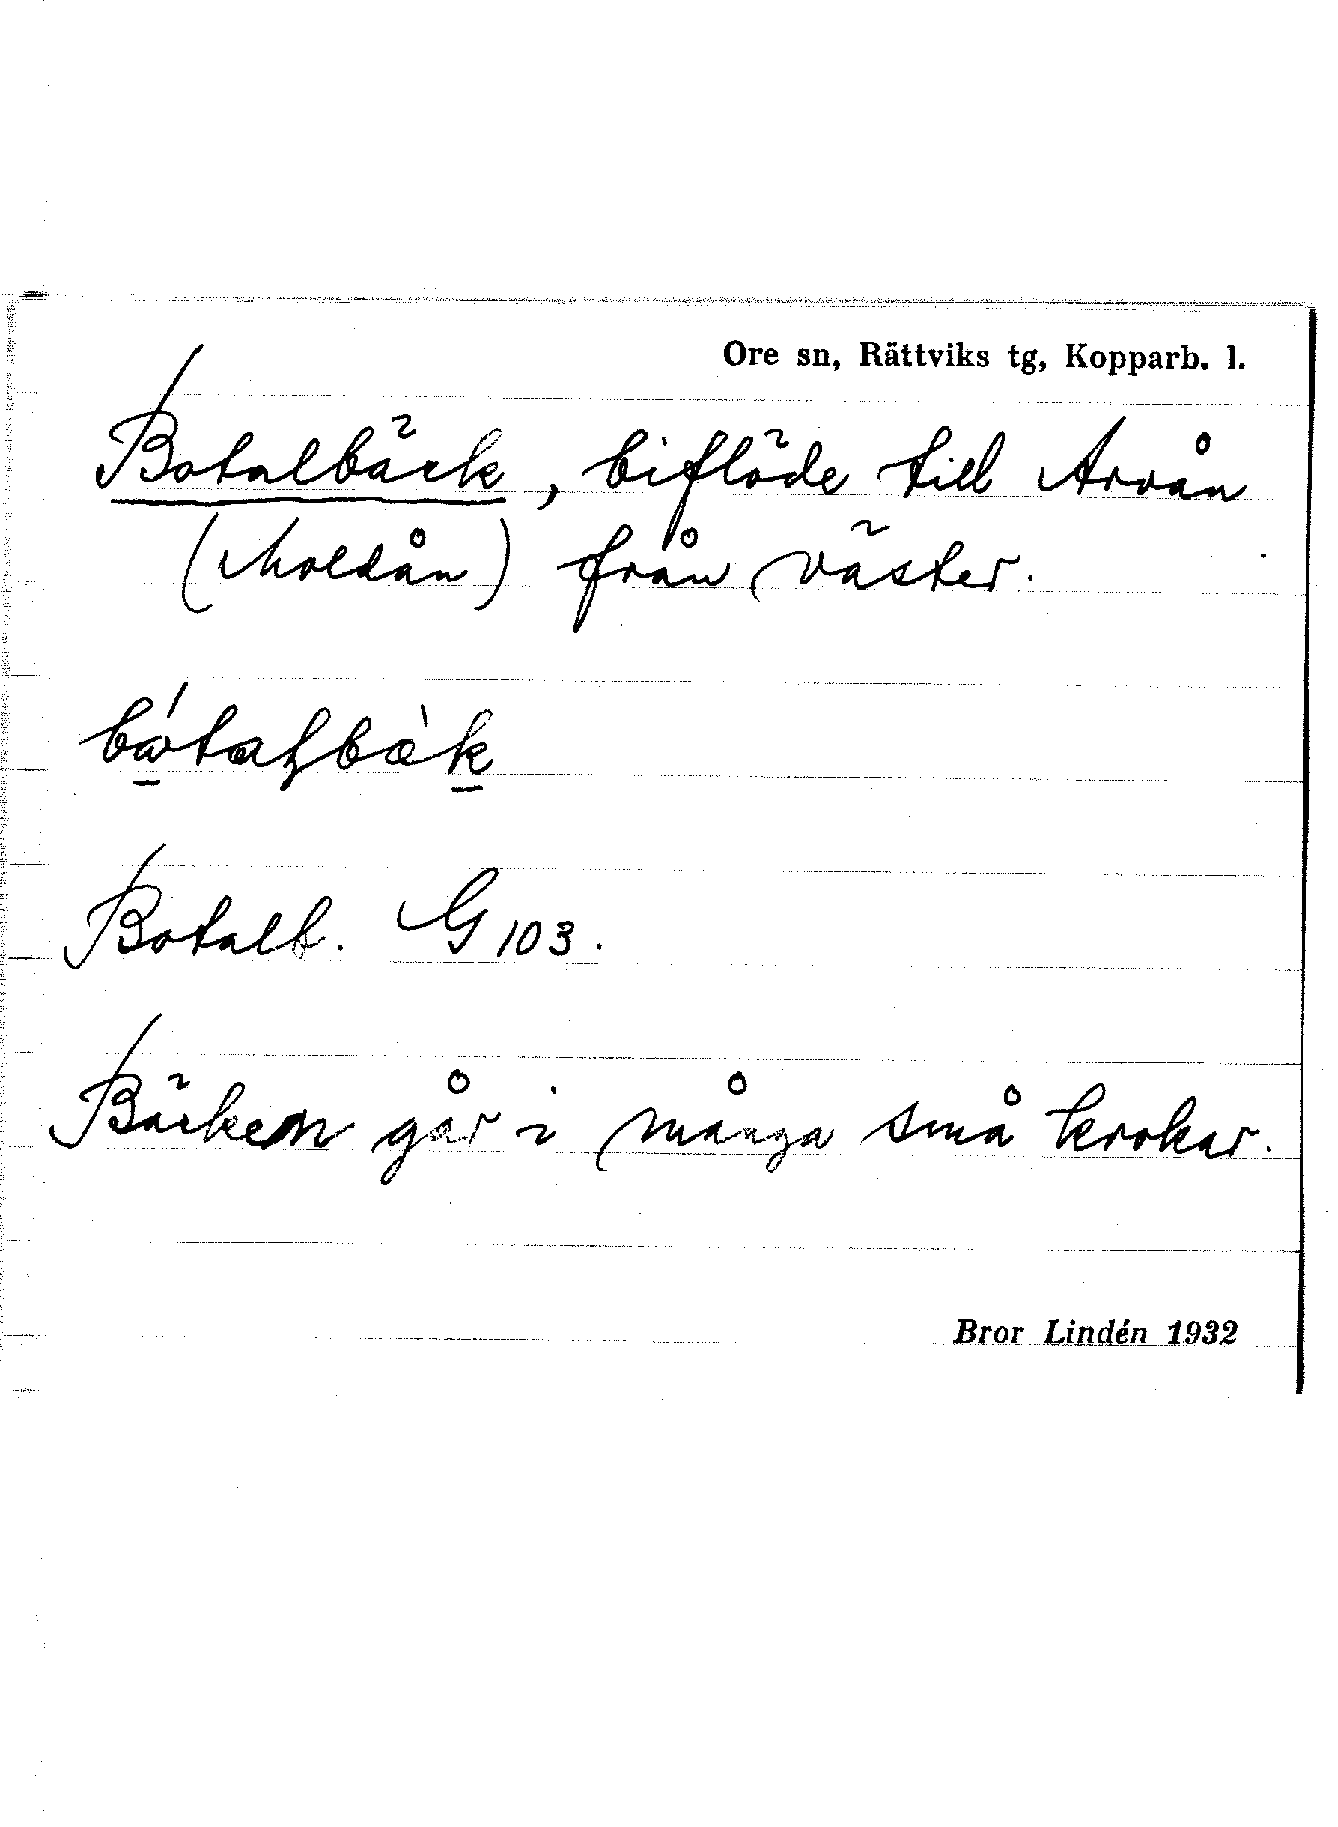 Ore sn, Rättviks tg, Kopparb. l.
Botalbäck, biflöde till Arvån
(Moldån) från väster.
Botalb. G 103.
Bäcken går i många små krokar.
Bror Lindén 1932